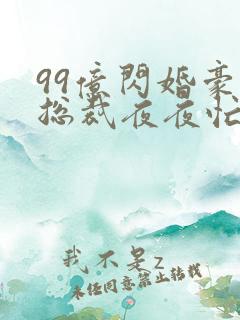 99億閃婚豪
總裁夜夜忙
我不是z
未經同意禁止轉載